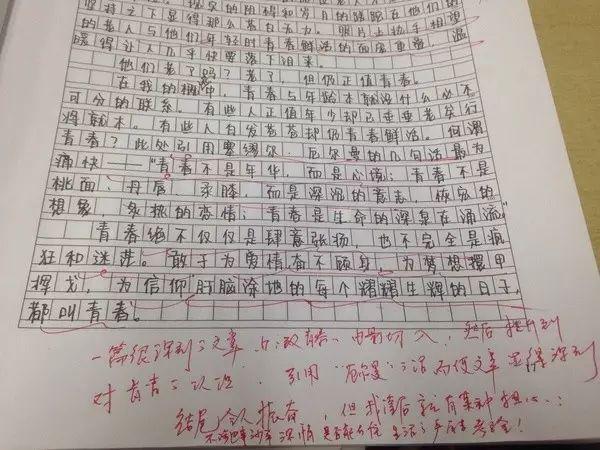 坚持之下显得那么苍白无力。照片上扬手相望
的老人与他们年轻时青春鲜活的面庞重叠，温
暖得让人几乎快要落下泪来。
他们老了吗？老了，但仍正值青春。
在我的概念中，青春与年龄本就没什么必不
可分的联系。有些人正值年少却已垂垂老矣行
将就木。有些人白发苍苍却仍青春鲜活。何谓
青春？此处引用塞缪尔·厄尔曼的几句话最为
痛快——“青春不是年华，而是心境；青春不是
桃面、丹唇、柔膝，而是深沉的意志，恢宏的
想象，炙热的恋情；青春是生命的深泉在涌流。”
青春绝不仅仅是肆意张扬，也不完全是疯
狂和迷茫。敢于为爱情奋不顾身，为梦想擐甲
挥戈，为信仰肝脑涂地的每个熠熠生辉的日子，
都叫青春。
一篇很深刻的文章，以 电影切入，然后提升到
对青春的认识，引用 的话而使文章显得深刻
结尾令人振奋，但我读后就有某种担心：